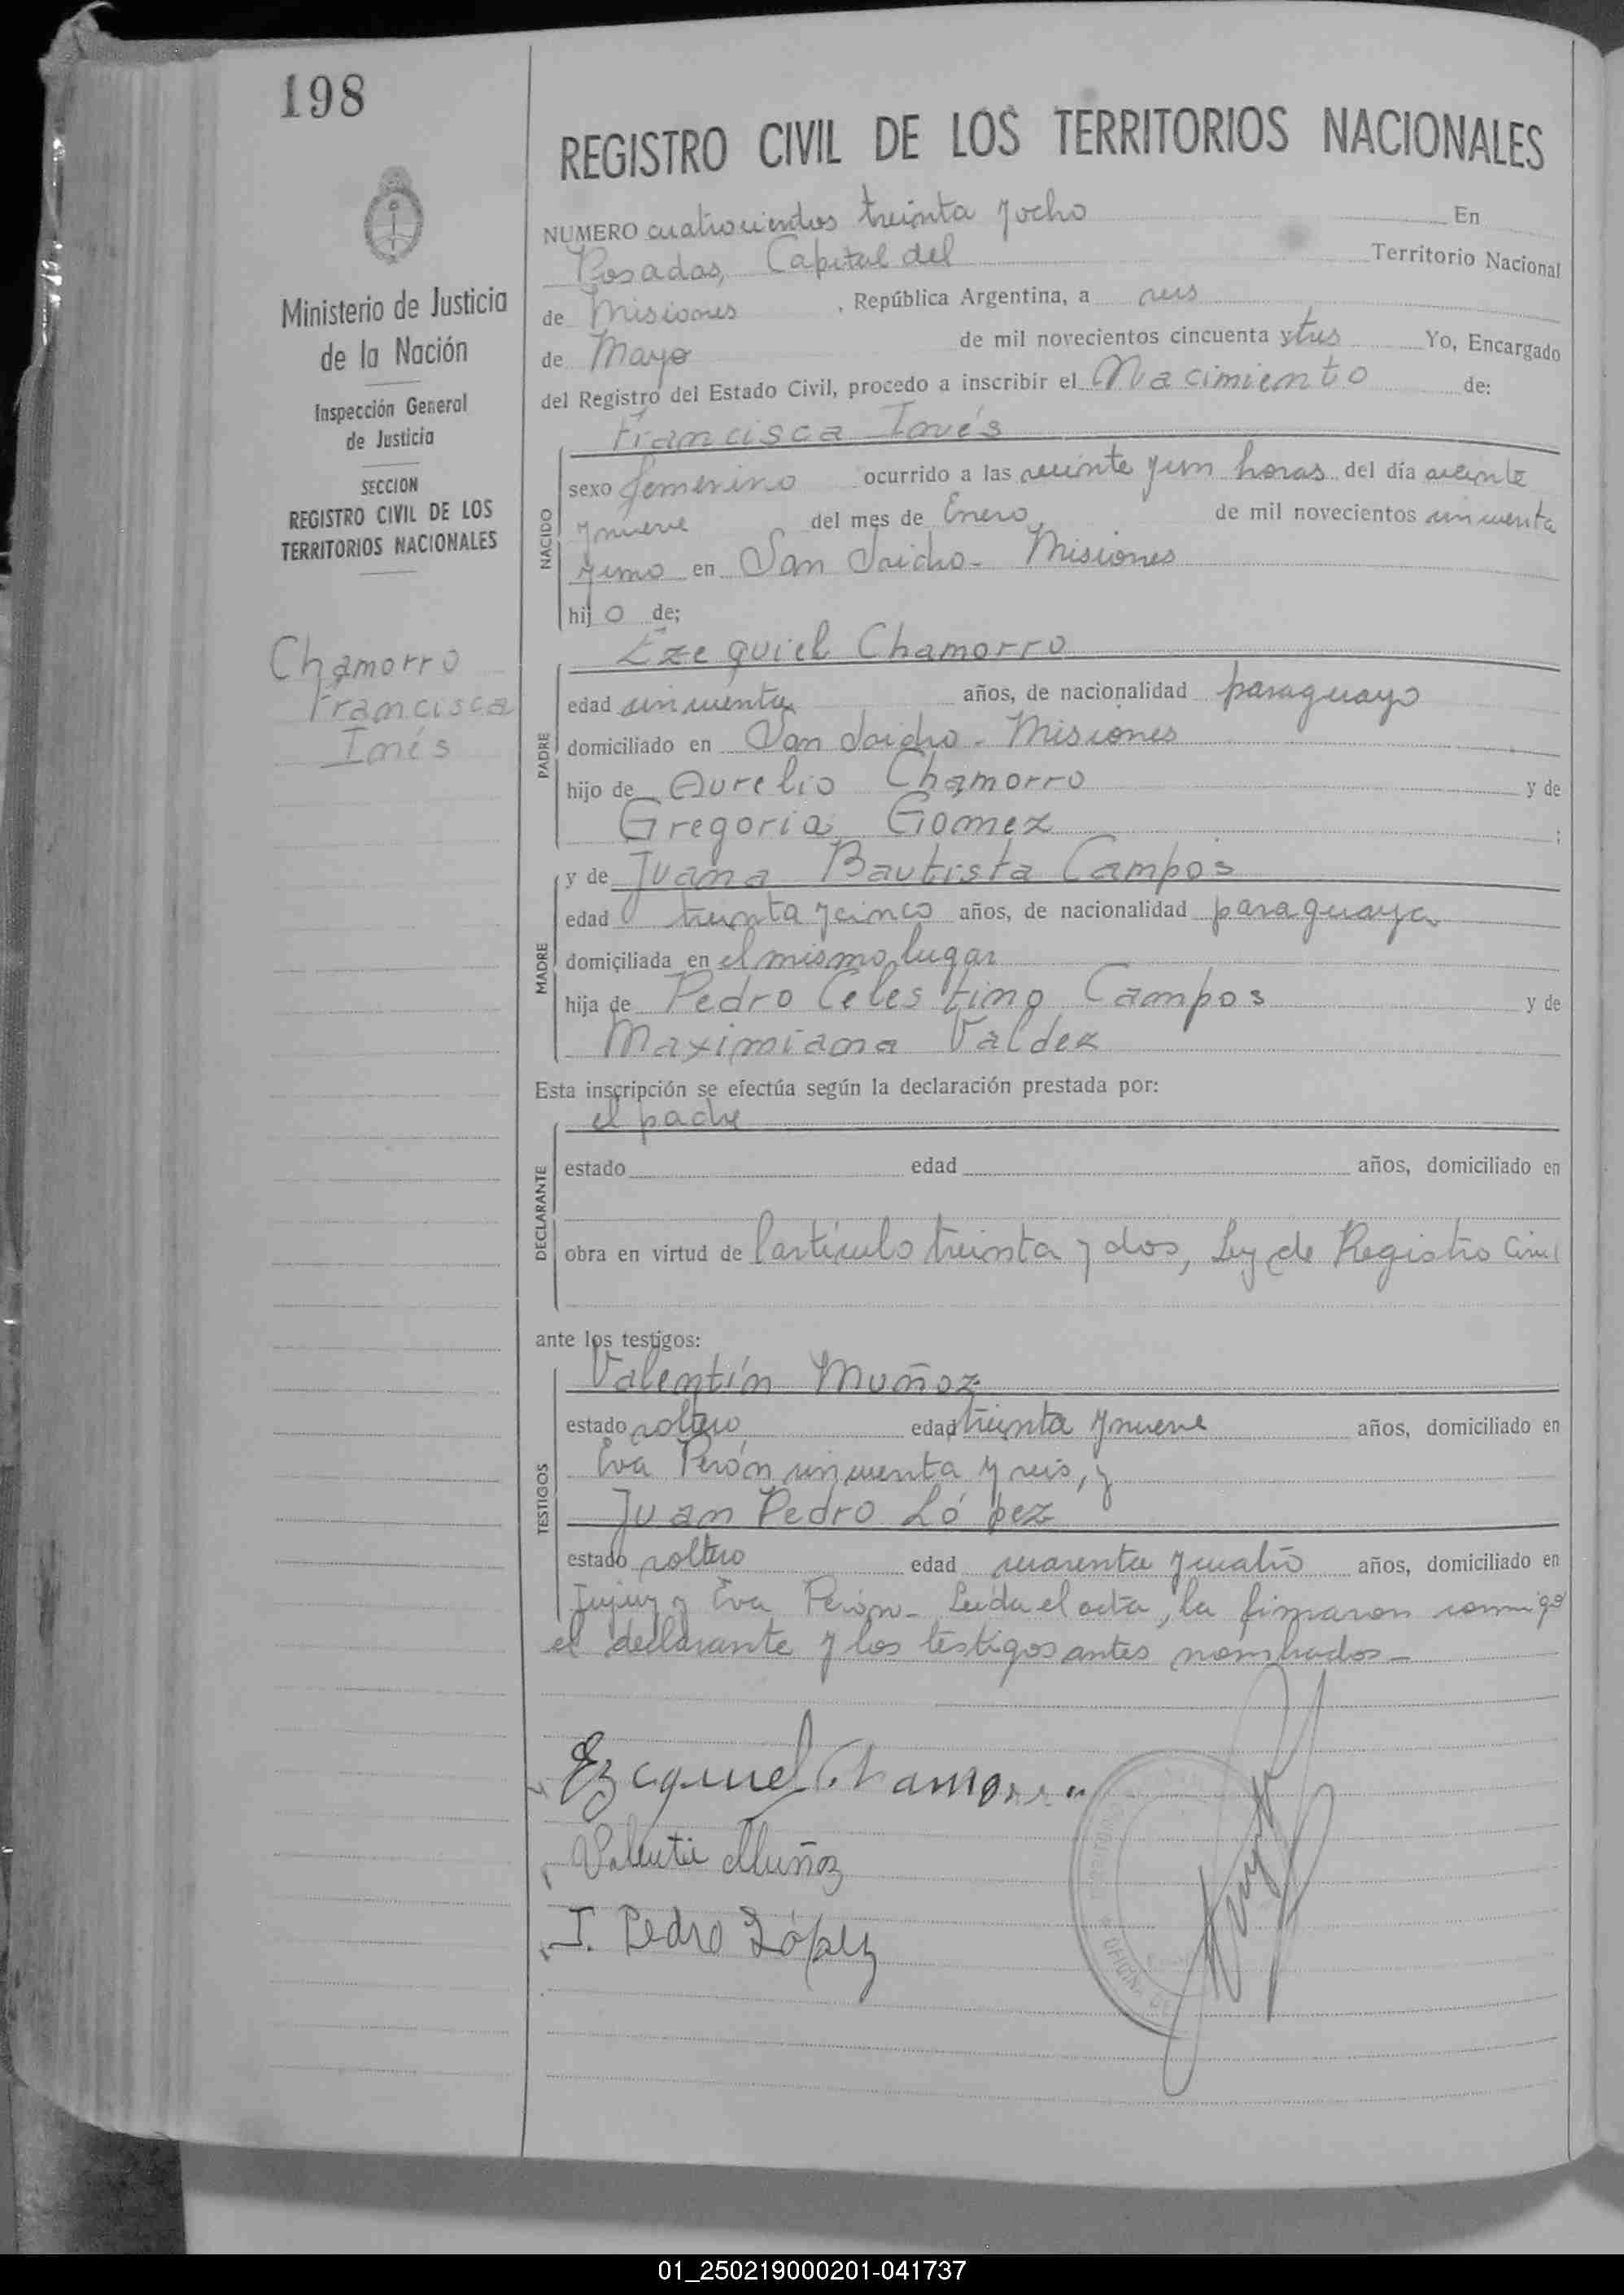 198
REGISTRO CIVIL DE LOS TERRITORIOS NACIONALES
NUMERO cuatrocientos treinta y ocho En
Posadas, Capital del Territorio Nacional
de Misiones , República Argentina, a seis
de Mayo de mil novecientos cincuenta y tres Yo, Encargado
del Registro del Estado Civil, procedo a inscribir el Nacimiento de:
Francisca Inés
NACIDO
sexo femenino ocurrido a las veinte y un horas del día veinte
y nueve del mes de Enero de mil novecientos cincuenta
y uno en San Isidro - Misiones
hij o de;
Ezequiel Chamorro
PADRE
edad cincuenta años, de nacionalidad paraguayo
domiciliado en San Isidro - Misiones
hijo de Aurelio Chamorro y de
Gregoria Gomez ;
y de Juana Bautista Campos
MADRE
edad treinta y cinco años, de nacionalidad paraguaya
domiciliada en el mismo lugar
hija de Pedro Celestino Campos y de
Maximiana Valdez
Esta inscripción se efectúa según la declaración prestada por:
el padre
DECLARANTE
estado edad años, domiciliado en
obra en virtud de l artículo treinta y dos, Ley de Registro Civil
ante los testigos:
Valentín Muñoz
TESTIGOS
estado soltero edad treinta y nueve años, domiciliado en
Eva Perón cincuenta y seis, y
Juan Pedro López
estado soltero edad cuarenta y cuatro años, domiciliado en
Jujuy y Eva Perón - Leída el acta, la firmaron conmigo
el declarante y los testigos antes nombrados -
Ezequiel Chamorro
Valentin Muñoz
J. Pedro López
OFICINA DE
Ministerio de Justicia
de la Nación
Inspección General
de Justicia
SECCION
REGISTRO CIVIL DE LOS
TERRITORIOS NACIONALES
Chamorro
Francisca
Inés
01_250219000201-041737